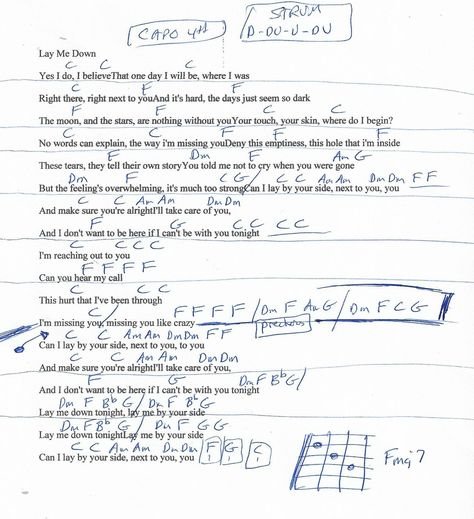 CAPO 4th
STRUM
D-DU-U-DU
Lay Me Down
C C
Yes I do, I believeThat one day I will be, where I was
C F
Right there, right next to youAnd it's hard, the days just seem so dark
F C
The moon, and the stars, are nothing without youYour touch, your skin, where do I begin?
C F F
No words can explain, the way i'm missing youDeny this emptiness, this hole that i'm inside
F Dm F Am G
These tears, they tell their own storyYou told me not to cry when you were gone
Dm F C G / C C Am Am Dm Dm F F
But the feeling's overwhelming, it's much too strongCan I lay by your side, next to you, you
C C Am Am Dm Dm
And make sure you're alrightI'll take care of you,
F G C C C C
And I don't want to be here if I can't be with you tonight
C C C C
I'm reaching out to you
F F F F
Can you hear my call
C C C
This hurt that I've been through
F F F F / Dm F Am G / Dm F C G
I'm missing you, missing you like crazy
C C Am Am Dm Dm F F
Can I lay by your side, next to you, to you
C C Am Am Dm Dm
And make sure you're alrightI'll take care of you,
F G Dm F Bb G /
And I don't want to be here if I can't be with you tonight
Dm F Bb G / Dm F Bb G
Lay me down tonight, lay me by your side
Dm F Bb G / Dm F G G
Lay me down tonightLay me by your side
C C Am Am Dm Dm F G C
Can I lay by your side, next to you, you
Fmaj7